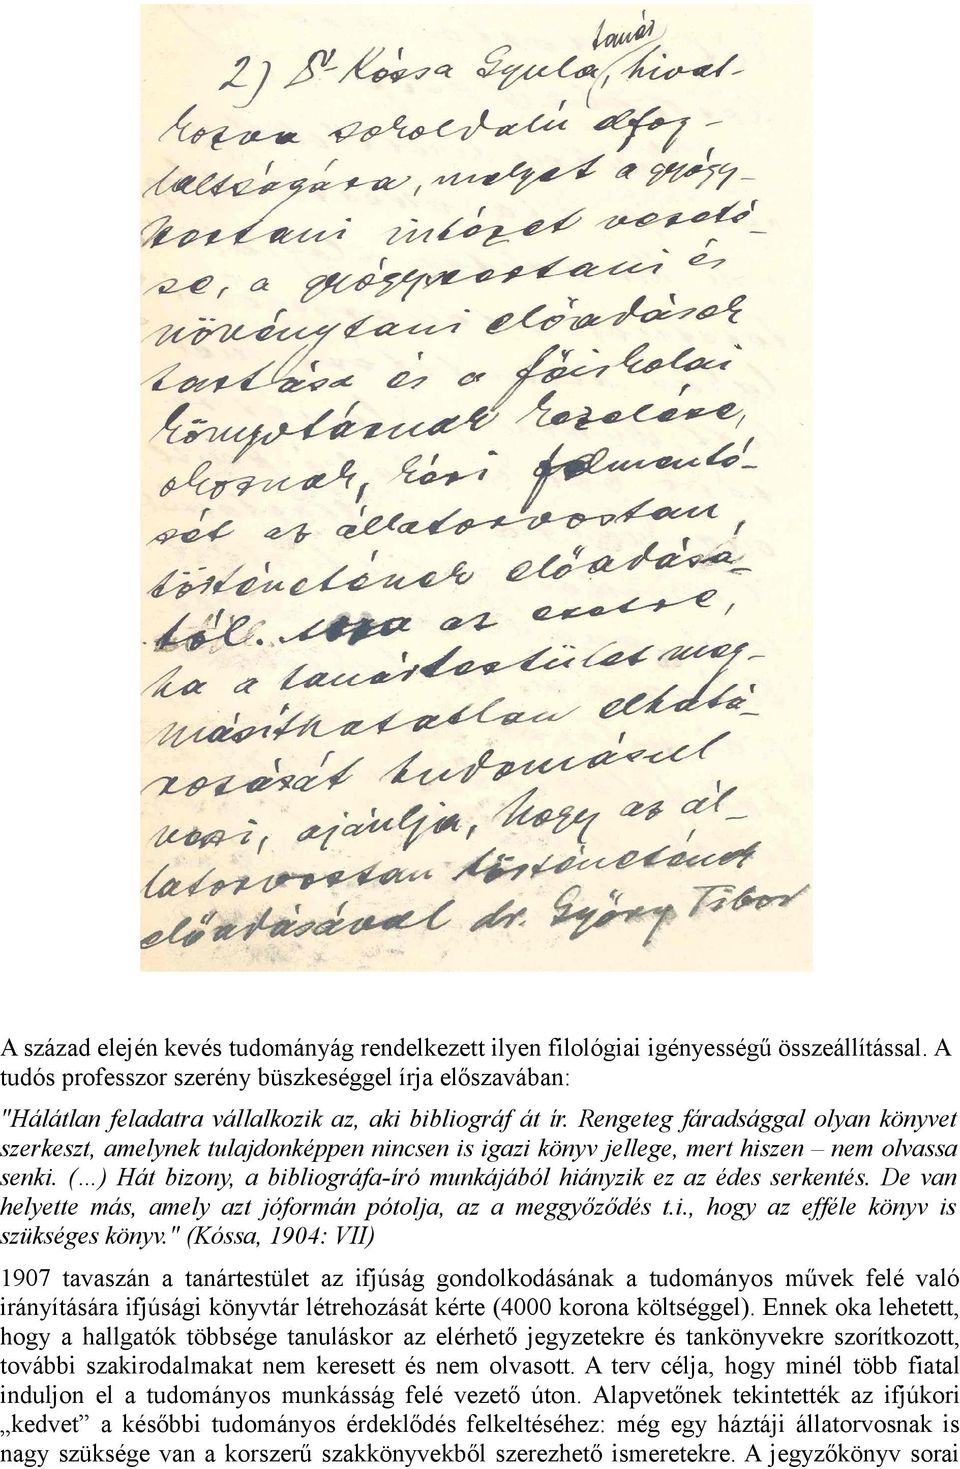 tanár
2) Kóssa Gyula, hivat-
kozva sokoldalú elfog-
laltságára, melyet a gyógy-
kostani intézet vezeté-
se, a gyógykostani és
növénytani előadások
tartása és a főiskolai
könyvtárnak kezelése,
okoznak, kéri felmenté-
sét az állatorvostan
történetének előadásá-
tól. az esetre,
ha a tanártestület meg-
másíthatatlan elhatá-
rozását tudomásul
veszi, ajánlja, hogy az ál-
latorvostan történetének
előadásával dr. Győry Tibor
A század elején kevés tudományág rendelkezett ilyen filológiai igényességű összeállítással. A
tudós professzor szerény büszkeséggel írja előszavában:
"Hálátlan feladatra vállalkozik az, aki bibliográf át ír. Rengeteg fáradsággal olyan könyvet
szerkeszt, amelynek tulajdonképpen nincsen is igazi könyv jellege, mert hiszen – nem olvassa
senki. (…) Hát bizony, a bibliográfa-író munkájából hiányzik ez az édes serkentés. De van
helyette más, amely azt jóformán pótolja, az a meggyőződés t.i., hogy az efféle könyv is
szükséges könyv." (Kóssa, 1904: VII)
1907 tavaszán a tanártestület az ifjúság gondolkodásának a tudományos művek felé való
irányítására ifjúsági könyvtár létrehozását kérte (4000 korona költséggel). Ennek oka lehetett,
hogy a hallgatók többsége tanuláskor az elérhető jegyzetekre és tankönyvekre szorítkozott,
további szakirodalmakat nem keresett és nem olvasott. A terv célja, hogy minél több fiatal
induljon el a tudományos munkásság felé vezető úton. Alapvetőnek tekintették az ifjúkori
„kedvet” a későbbi tudományos érdeklődés felkeltéséhez: még egy háztáji állatorvosnak is
nagy szüksége van a korszerű szakkönyvekből szerezhető ismeretekre. A jegyzőkönyv sorai